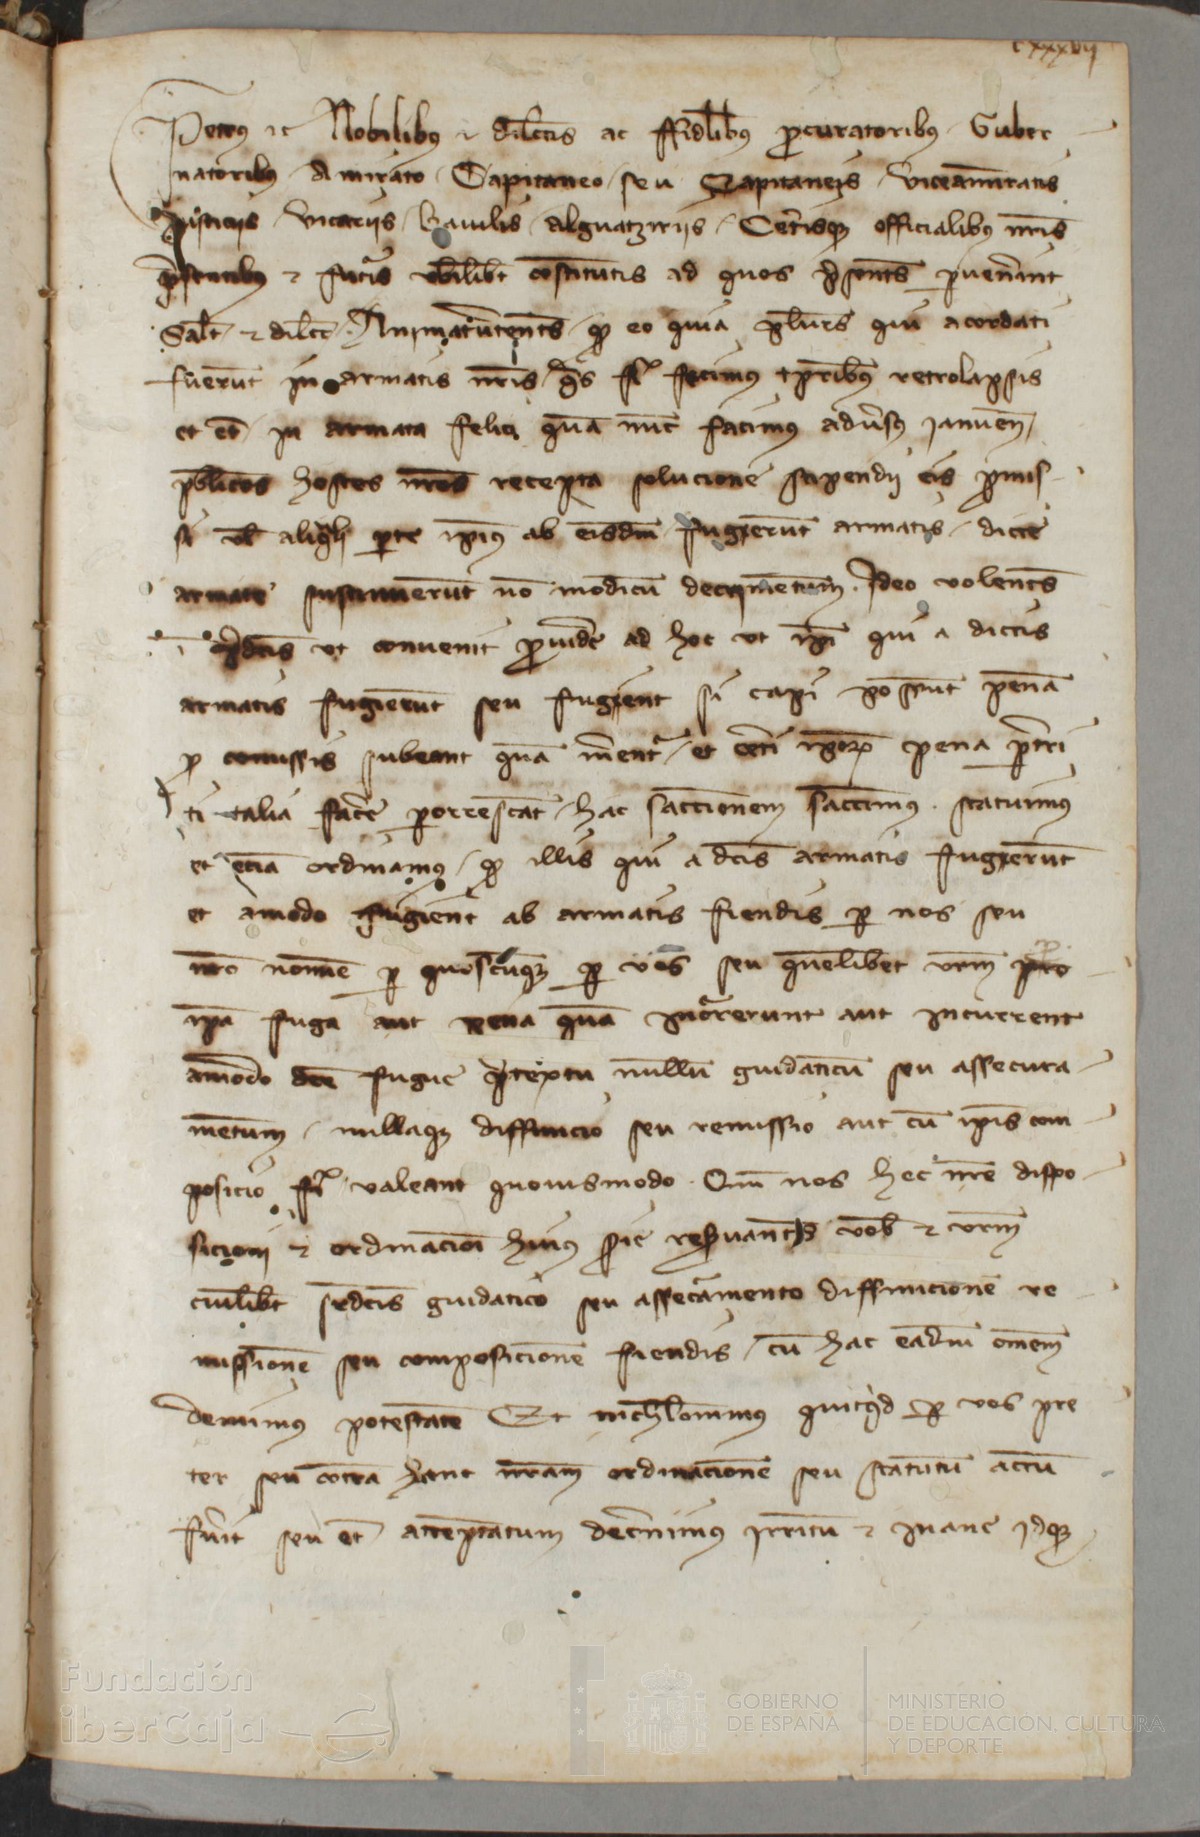 cxxxvij
Petrus etc Nobilibus et dilectis ac ffidelibus procuratoribus Guber
natoribus Amirato Capitaneo seu Capitaneis viceamiratis
Justiciis vicariis Baiulis alguatziriis Ceterisque officialibus nostris
presentibus et futuris ubilibet constitutis ad quos presentes pervenerint
Salutem et dilectionem eo quia plures qui acordati
fuerunt in armatis nostris quas fieri fecimus temporibus retrolapsis
et etiam in armata felici quam nunc facimus adversus januenses
publicos hostes nostros recepta solucione stipendii eis promis
si vel aliqua parte ipsius ab eisdem fugierunt armatis dicte
armate sustinuerunt non modicum decrimentum Ideo volentes
in predictis ut convenit providere ad hoc ut ipsi qui a dictis
armatis fugierunt seu fugient si capi possunt penam
pro comissis subeant quam merentur et ceteri ipsorum pena perterri
ti talia facere perorrescant hac sanccionem sanccimus statuimus
et etiam ordinamus quod illis qui a dictis armatis fugierunt
et amodo fugient ab armatis fiendis per nos seu
nostro nomine per quoscumque per vos seu quemlibet vestrum pro
ipsa fuga aut pena quam incurrerunt aut incurrent
amodo dicte fugue pretextu nullum guidaticum seu assecura
mentum nullaque diffinicio seu remissio aut cum ipsis com
posicio fieri valeant quovismodo Quoniam nos hec nostre dispo
sicioni et ordinacioni huius serie reservantes vobis et vestrum
cuilibet super dictis guidatico seu assecuramento diffinicione re
missione seu composicione fiendis cum hac eadem omnem
demimus potestatem Et nichilominus quicquid per vos pre
ter seu contra hanc nostram ordinacionem seu statutum actum
fuerit seu etiam acceptatum decernimus irritum et inane idque
Fundación
iberCaja
GOBIERNO
DE ESPAÑA
MINISTERIO
DE EDUCACIÓN, CULTURA
Y DEPORTE